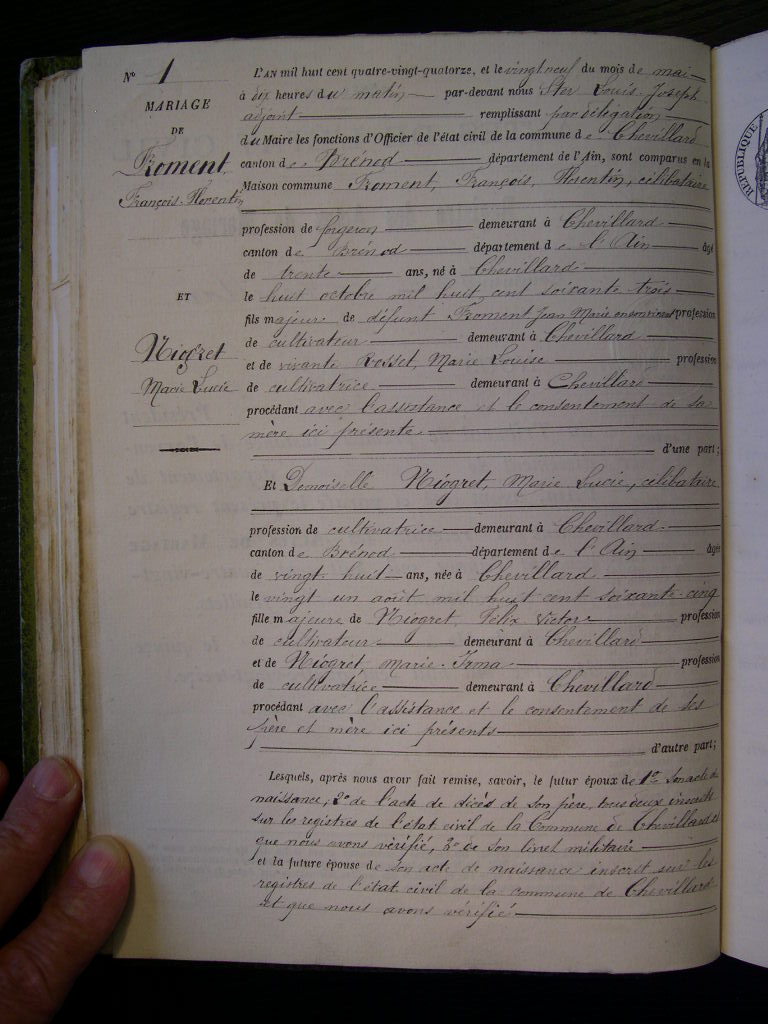 N° 1
MARIAGE
DE
Froment
François-Florentin
ET
Niogret
Marie Lucie
L'AN mil huit cent quatre-vingt-quatorze, et le vingt neuf du mois de mai
à dix heures du matin par-devant nous Ster Louis Joseph
adjoint remplissant par délégation
du Maire les fonctions d'Officier de l'état civil de la commune de Chevillard
canton de Brénod département de l'Ain, sont comparus en la
Maison commune Froment, François, Florentin, célibataire
profession de forgeron demeurant à Chevillard
canton de Brénod département de l'Ain âgé
de trente ans, né à Chevillard
le huit octobre mil huit cent soixante-trois
fils majeur de défunt Froment Jean Marie en son vivant profession
de cultivateur demeurant à Chevillard
et de vivante Rosset, Marie Louise profession
de cultivatrice demeurant à Chevillard
procédant avec l'assistance et le consentement de sa
mère ici présente
d'une part;
Et Demoiselle Niogret, Marie Lucie, célibataire
profession de cultivatrice demeurant à Chevillard
canton de Brénod département de l'Ain âgée
de vingt-huit ans, née à Chevillard
le vingt un août mil huit cent soixante-cinq
fille majeure de Niogret, Félix Victor profession
de cultivateur demeurant à Chevillard
et de Niogret, Marie-Irma profession
de cultivatrice demeurant à Chevillard
procédant avec l'assistance et le consentement de ses
père et mère ici présents
d'autre part;
Lesquels, après nous avoir fait remise, savoir, le futur époux de 1° son acte de
naissance, 2° de l'acte de décès de son père, tous deux inscrits
sur les registres de l'état civil de la Commune de Chevillard et
que nous avons vérifié, 3° de son livret militaire
et la future épouse de son acte de naissance inscrit sur les
registres de l'état civil de la commune de Chevillard
et que nous avons vérifié
RÉPUBLIQUE